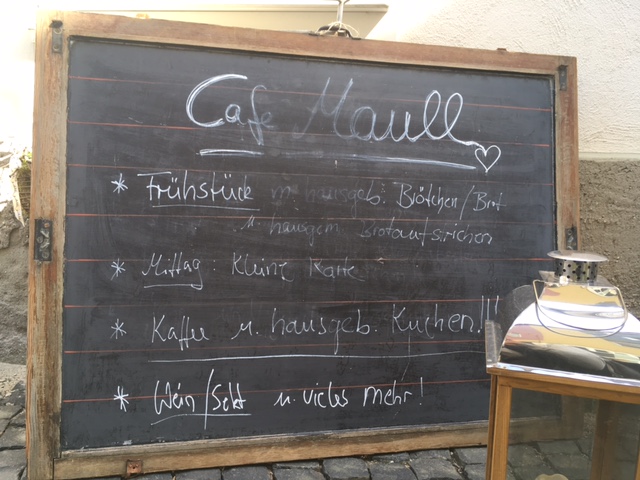 Cafe Maull
* Frühstück m. hausgeb. Brötchen/Brot
u. hausgem Brotaufstrichen
* Mittag: Kleine Karte
* Kaffee u. hausgeb. Kuchen!!!
* Wein/Sekt u. vieles mehr!